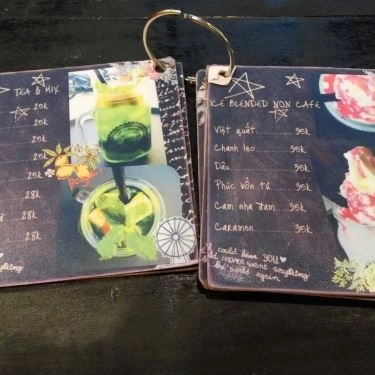 TEA & MIX
25k
25k
25k
25k
25k
28k
28k
28k
ICE BLENDED NON CAFE
Việt quất 35k
Chanh leo 35k
Dâu 35k
Phúc bồn tử 35k
Cam nha đam 35k
Caramen 35k
could have YOU
never want anything
the world again